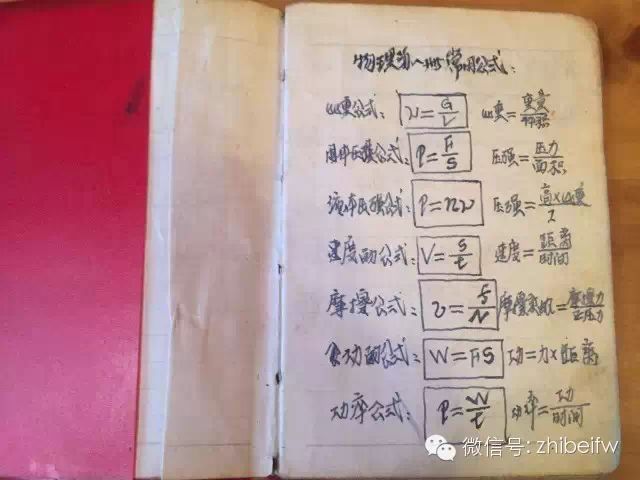 物理第一册常用公式:
比重公式: N=G/V 比重=重量/体积
固体压强公式: P=F/S 压强=压力/面积
液体压强公式: P=hN 压强=高×比重
速度的公式: V=S/t 速度=距离/时间
摩擦公式: 摩擦系数=摩擦力/正压力
功的公式: W=FS 功=力×距离
功率公式: P=W/t 功率=功/时间
微信号: zhibeifw